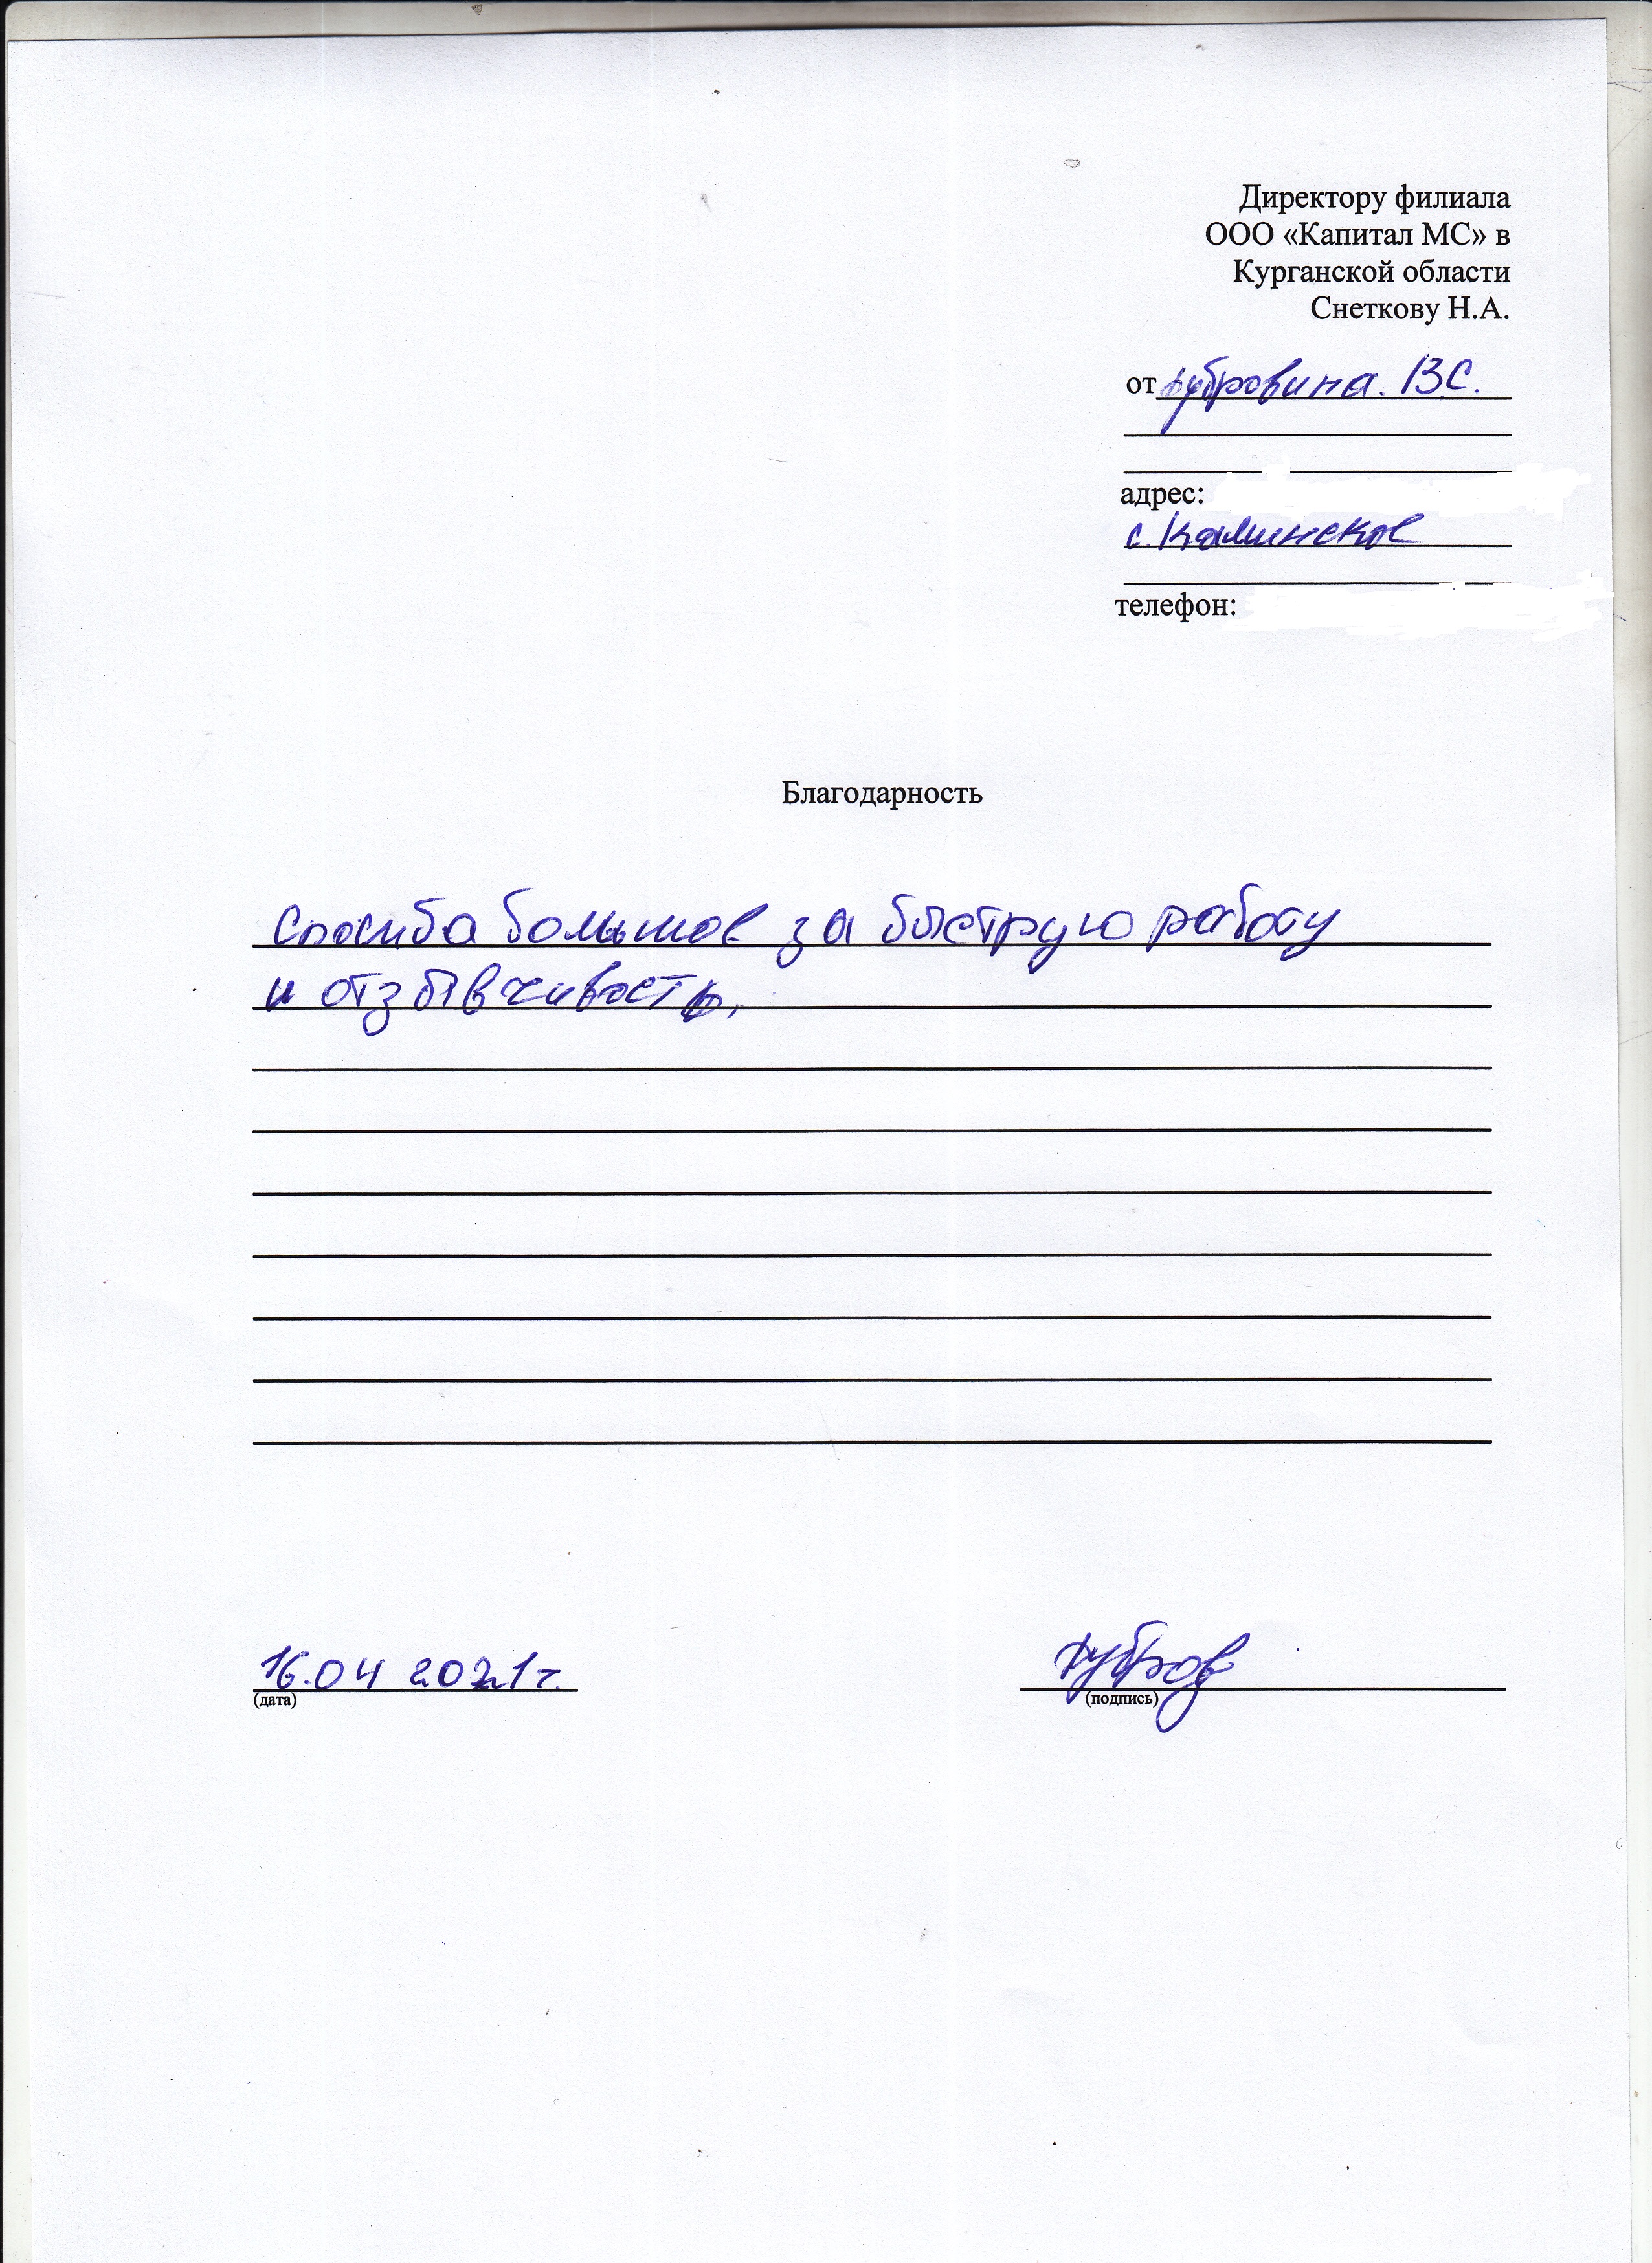 Директору филиала
ООО «Капитал МС» в
Курганской области
Снеткову Н.А.
от Дубровина. В.С.
адрес:
с. Калинское
телефон:
Благодарность
Спосиба большое за быструю работу
и отзывчивость,
16.04 2021 г.
(дата)
Дубров
(подпись)